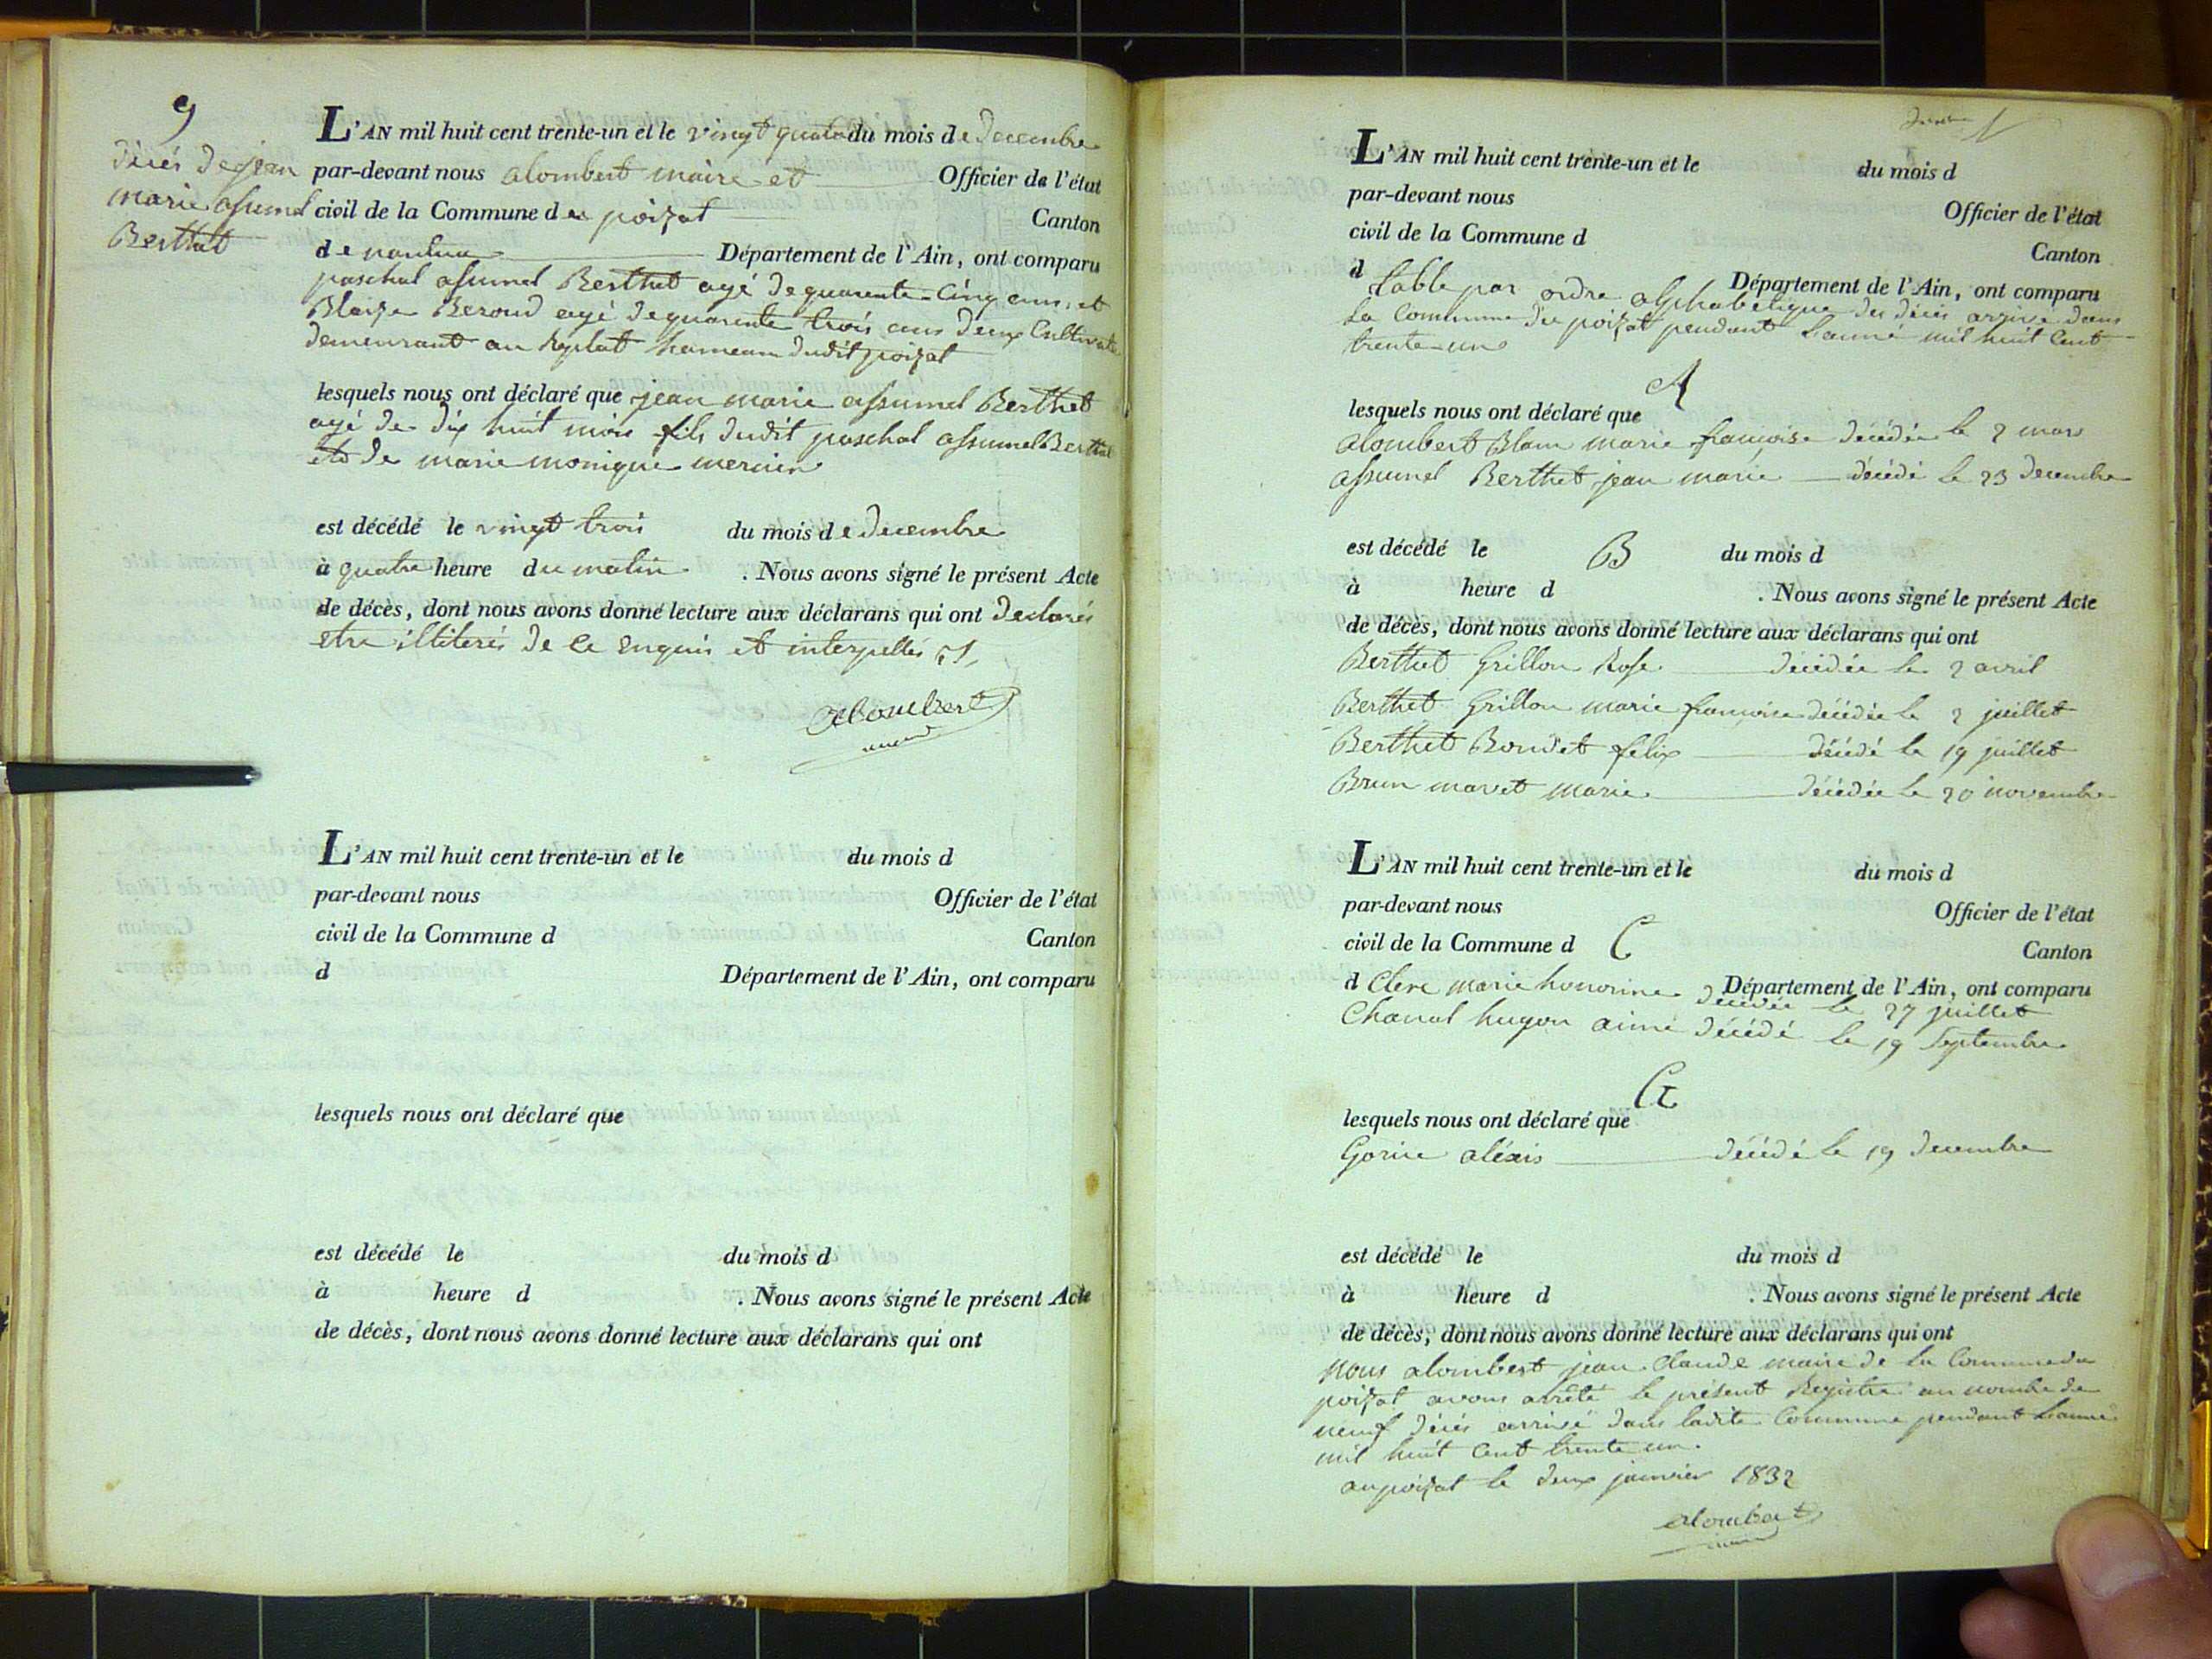 9
décés de jean
marie assumel
Berthet
L'AN mil huit cent trente-un et le vingt quatre du mois de decembre
par-devant nous alombert maire et Officier de l'état
civil de la Commune du poizat Canton
de nantua Département de l'Ain, ont comparu
paschal assumel Berthet agé de quarente-cinq ans, et
Blaize Beroud agé de quarente trois ans deux Cultivate
demeurant au Replat hameau dudit poizat
lesquels nous ont déclaré que jean marie assumel Berthet
agé de dix huit mois fils dudit paschal assumel Berthet
et de marie monique mercier
est décédé le vingt trois du mois de decembre
à quatre heure du matin . Nous avons signé le présent Acte
de décès, dont nous avons donné lecture aux déclarans qui ont declarés
etre illiterés de ce enquis et interpellés
Alombert
L'AN mil huit cent trente-un et le du mois d
par-devant nous Officier de l'état
civil de la Commune d Canton
d Département de l'Ain, ont comparu
lesquels nous ont déclaré que
est décédé le du mois d
à heure d . Nous avons signé le présent Acte
de décès, dont nous avons donné lecture aux déclarans qui ont
L'AN mil huit cent trente-un et le du mois d
par-devant nous Officier de l'état
civil de la Commune d Canton
d Département de l'Ain, ont comparu
table par ordre alphabétique des décés arrivé dans
la Commune du poizat pendant l'année mil huit Cent
trente-un
A
lesquels nous ont déclaré que
alombert Blanc marie françoise décédée le 2 mars
assumel Berthet jean marie décédé le 23 decembre
est décédé le B du mois d
à heure d . Nous avons signé le présent Acte
de décès, dont nous avons donné lecture aux déclarans qui ont
Berthet Grillon Rose décédée le 2 avril
Berthet Grillon marie françoise décédée le 2 juillet
Berthet Bondet felix décédé le 19 juillet
Brun mavet marie décédée le 20 novembre
L'AN mil huit cent trente-un et le du mois d
par-devant nous Officier de l'état
civil de la Commune d C Canton
d Département de l'Ain, ont comparu
Clerc marie honorine décédée le 27 juillet
Chanal hugon aimé décédé le 19 Septembre
G
lesquels nous ont déclaré que
Gorice aléxis décédé le 19 decembre
est décédé le du mois d
à heure d . Nous avons signé le présent Acte
de décès, dont nous avons donné lecture aux déclarans qui ont
Nous alombert jean Claude maire de la Commune du
poizat avons arrêté le présent Registre au nombre de
neuf décés arrivé dans ladite Commune pendant l'année
mil huit Cent trente un.
au poizat le deux janvier 1832
Alombert